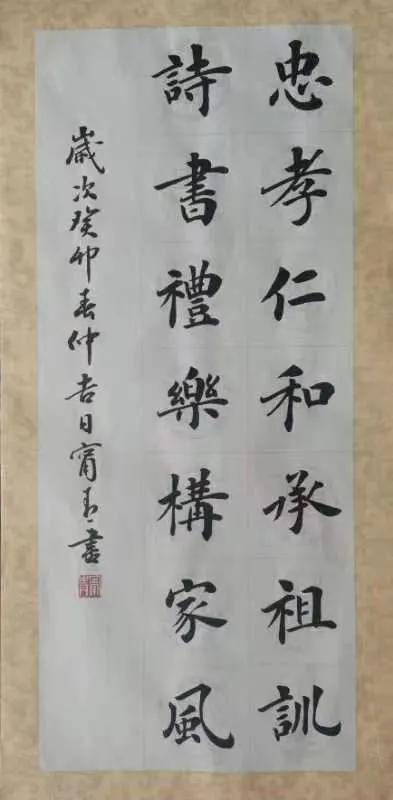 忠孝仁和承祖訓
詩書禮樂構家風
歲次癸卯春仲吉日甯青書